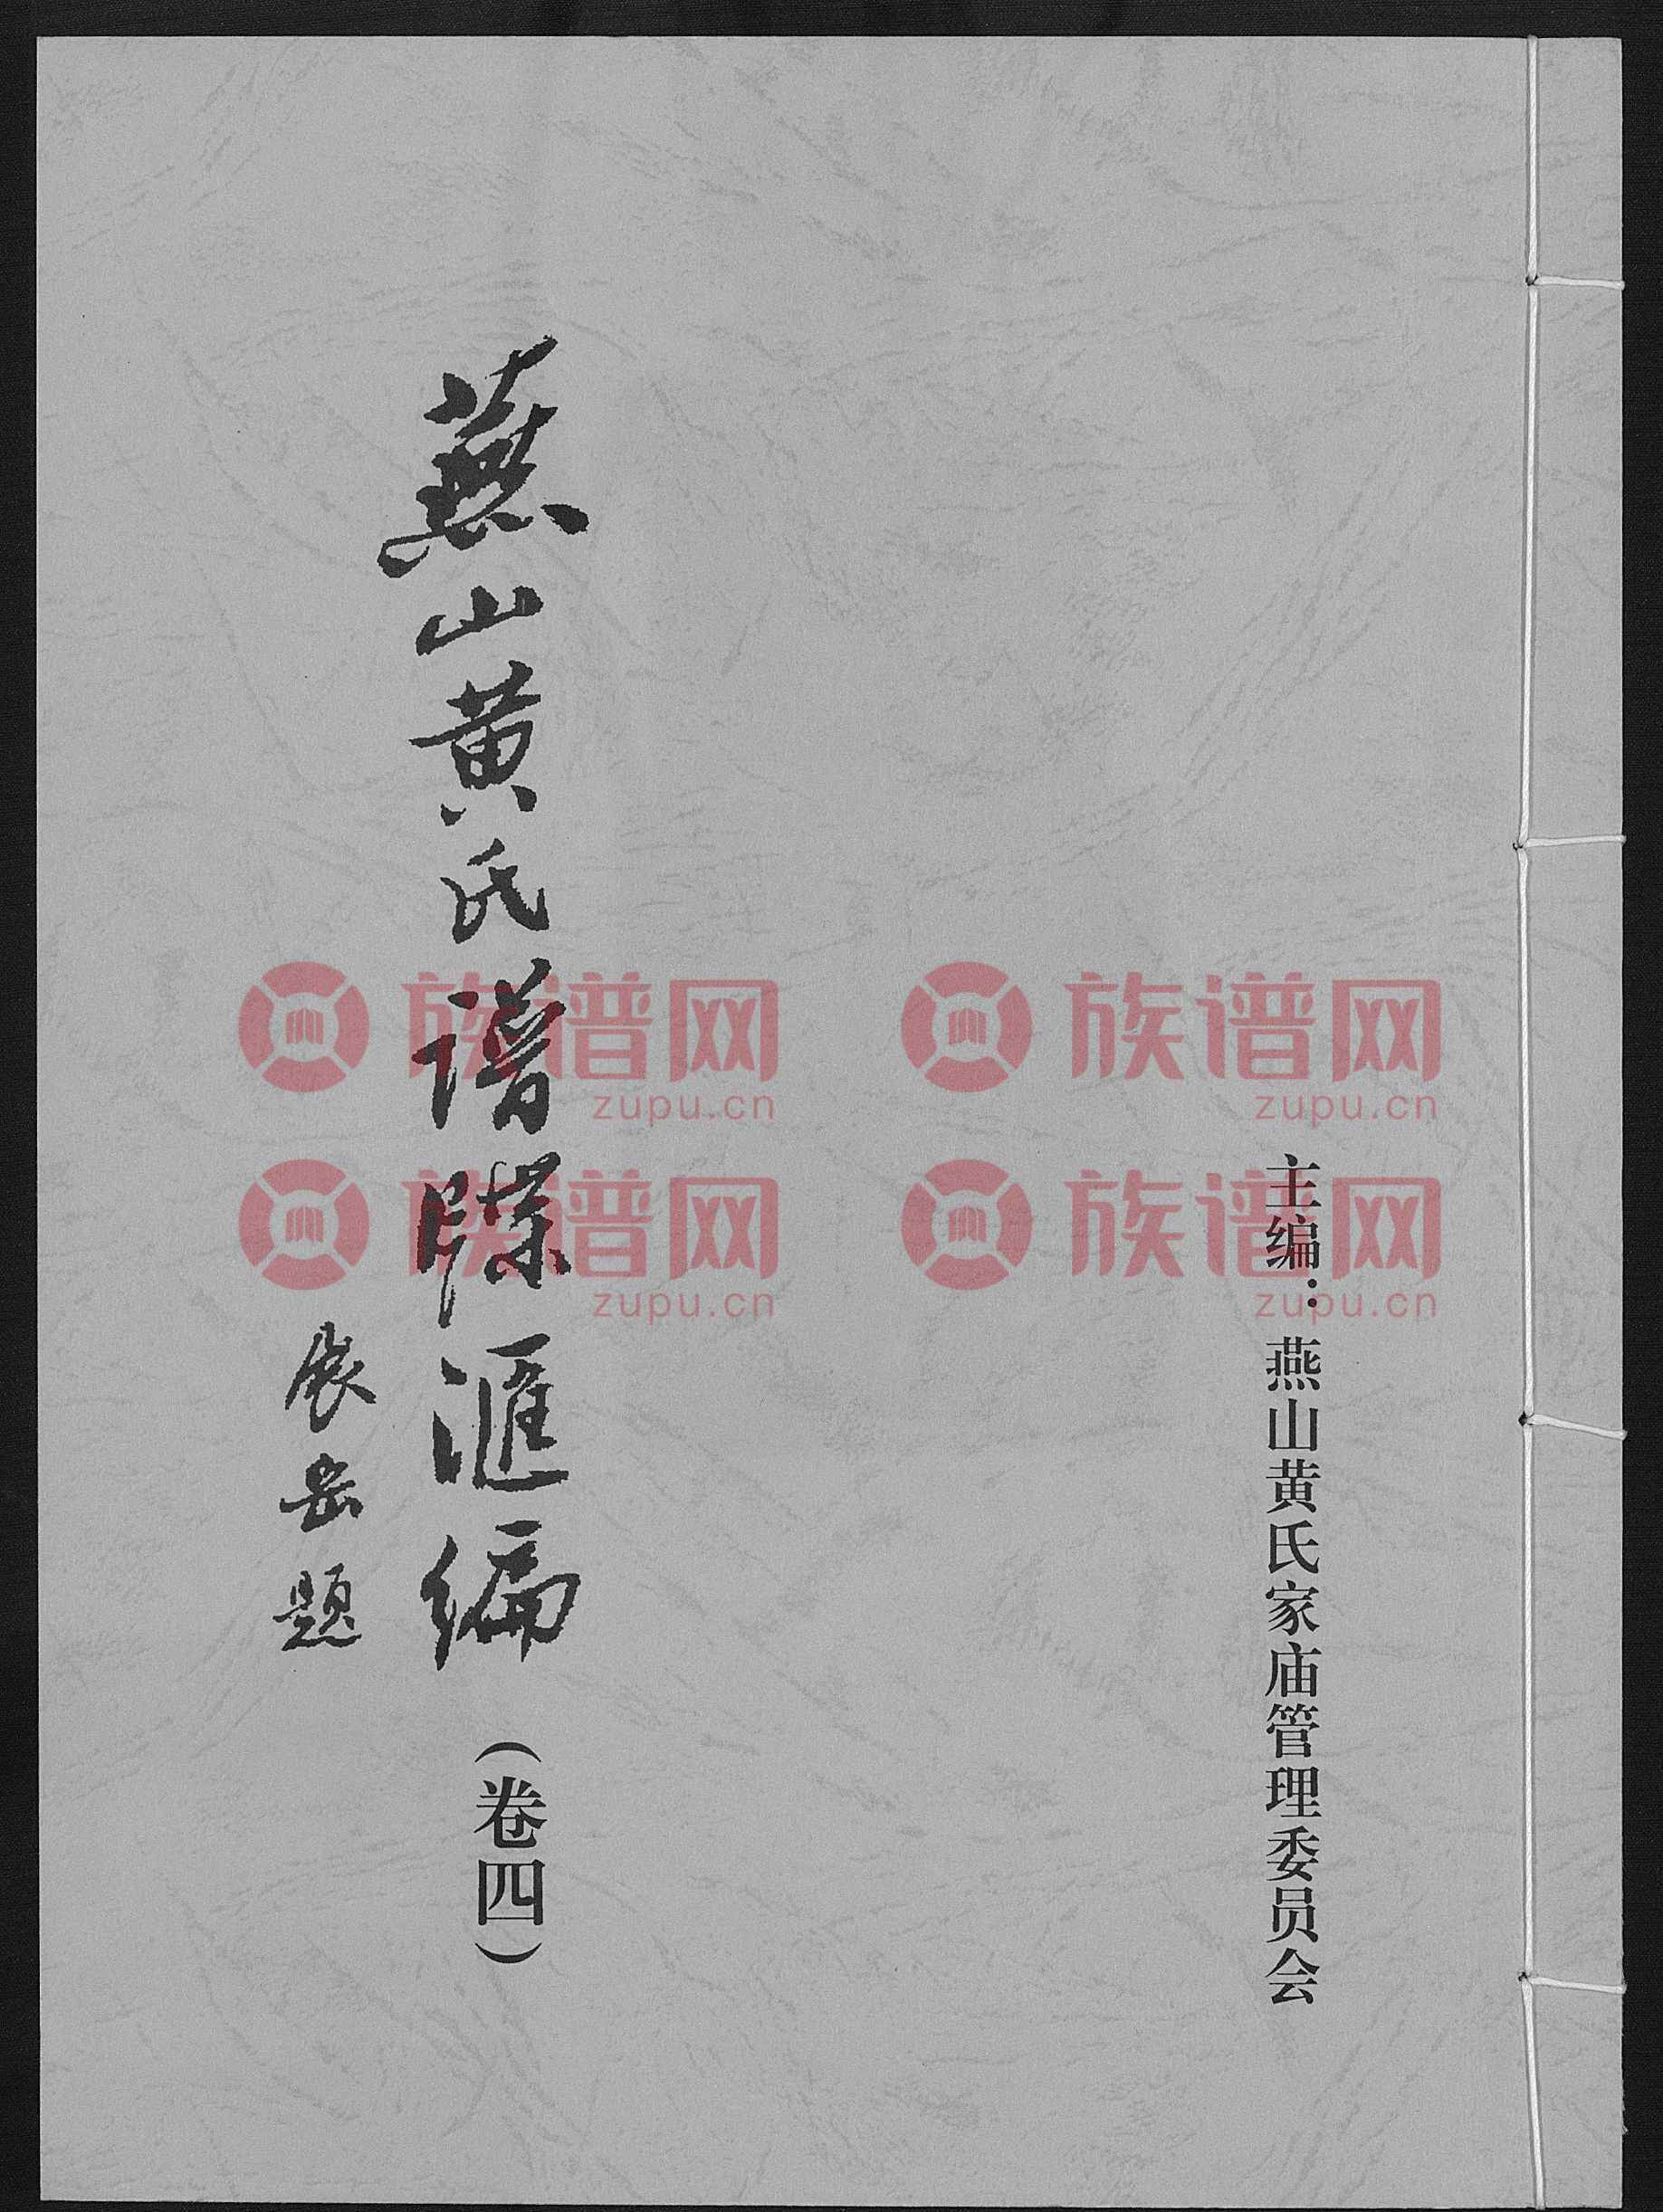 主编：燕山黄氏家庙管理委员会
燕山黄氏譜牒滙編（卷四）
展岳题
族谱网
zupu.cn
族谱网
zupu.cn
族谱网
zupu.cn
族谱网
zupu.cn